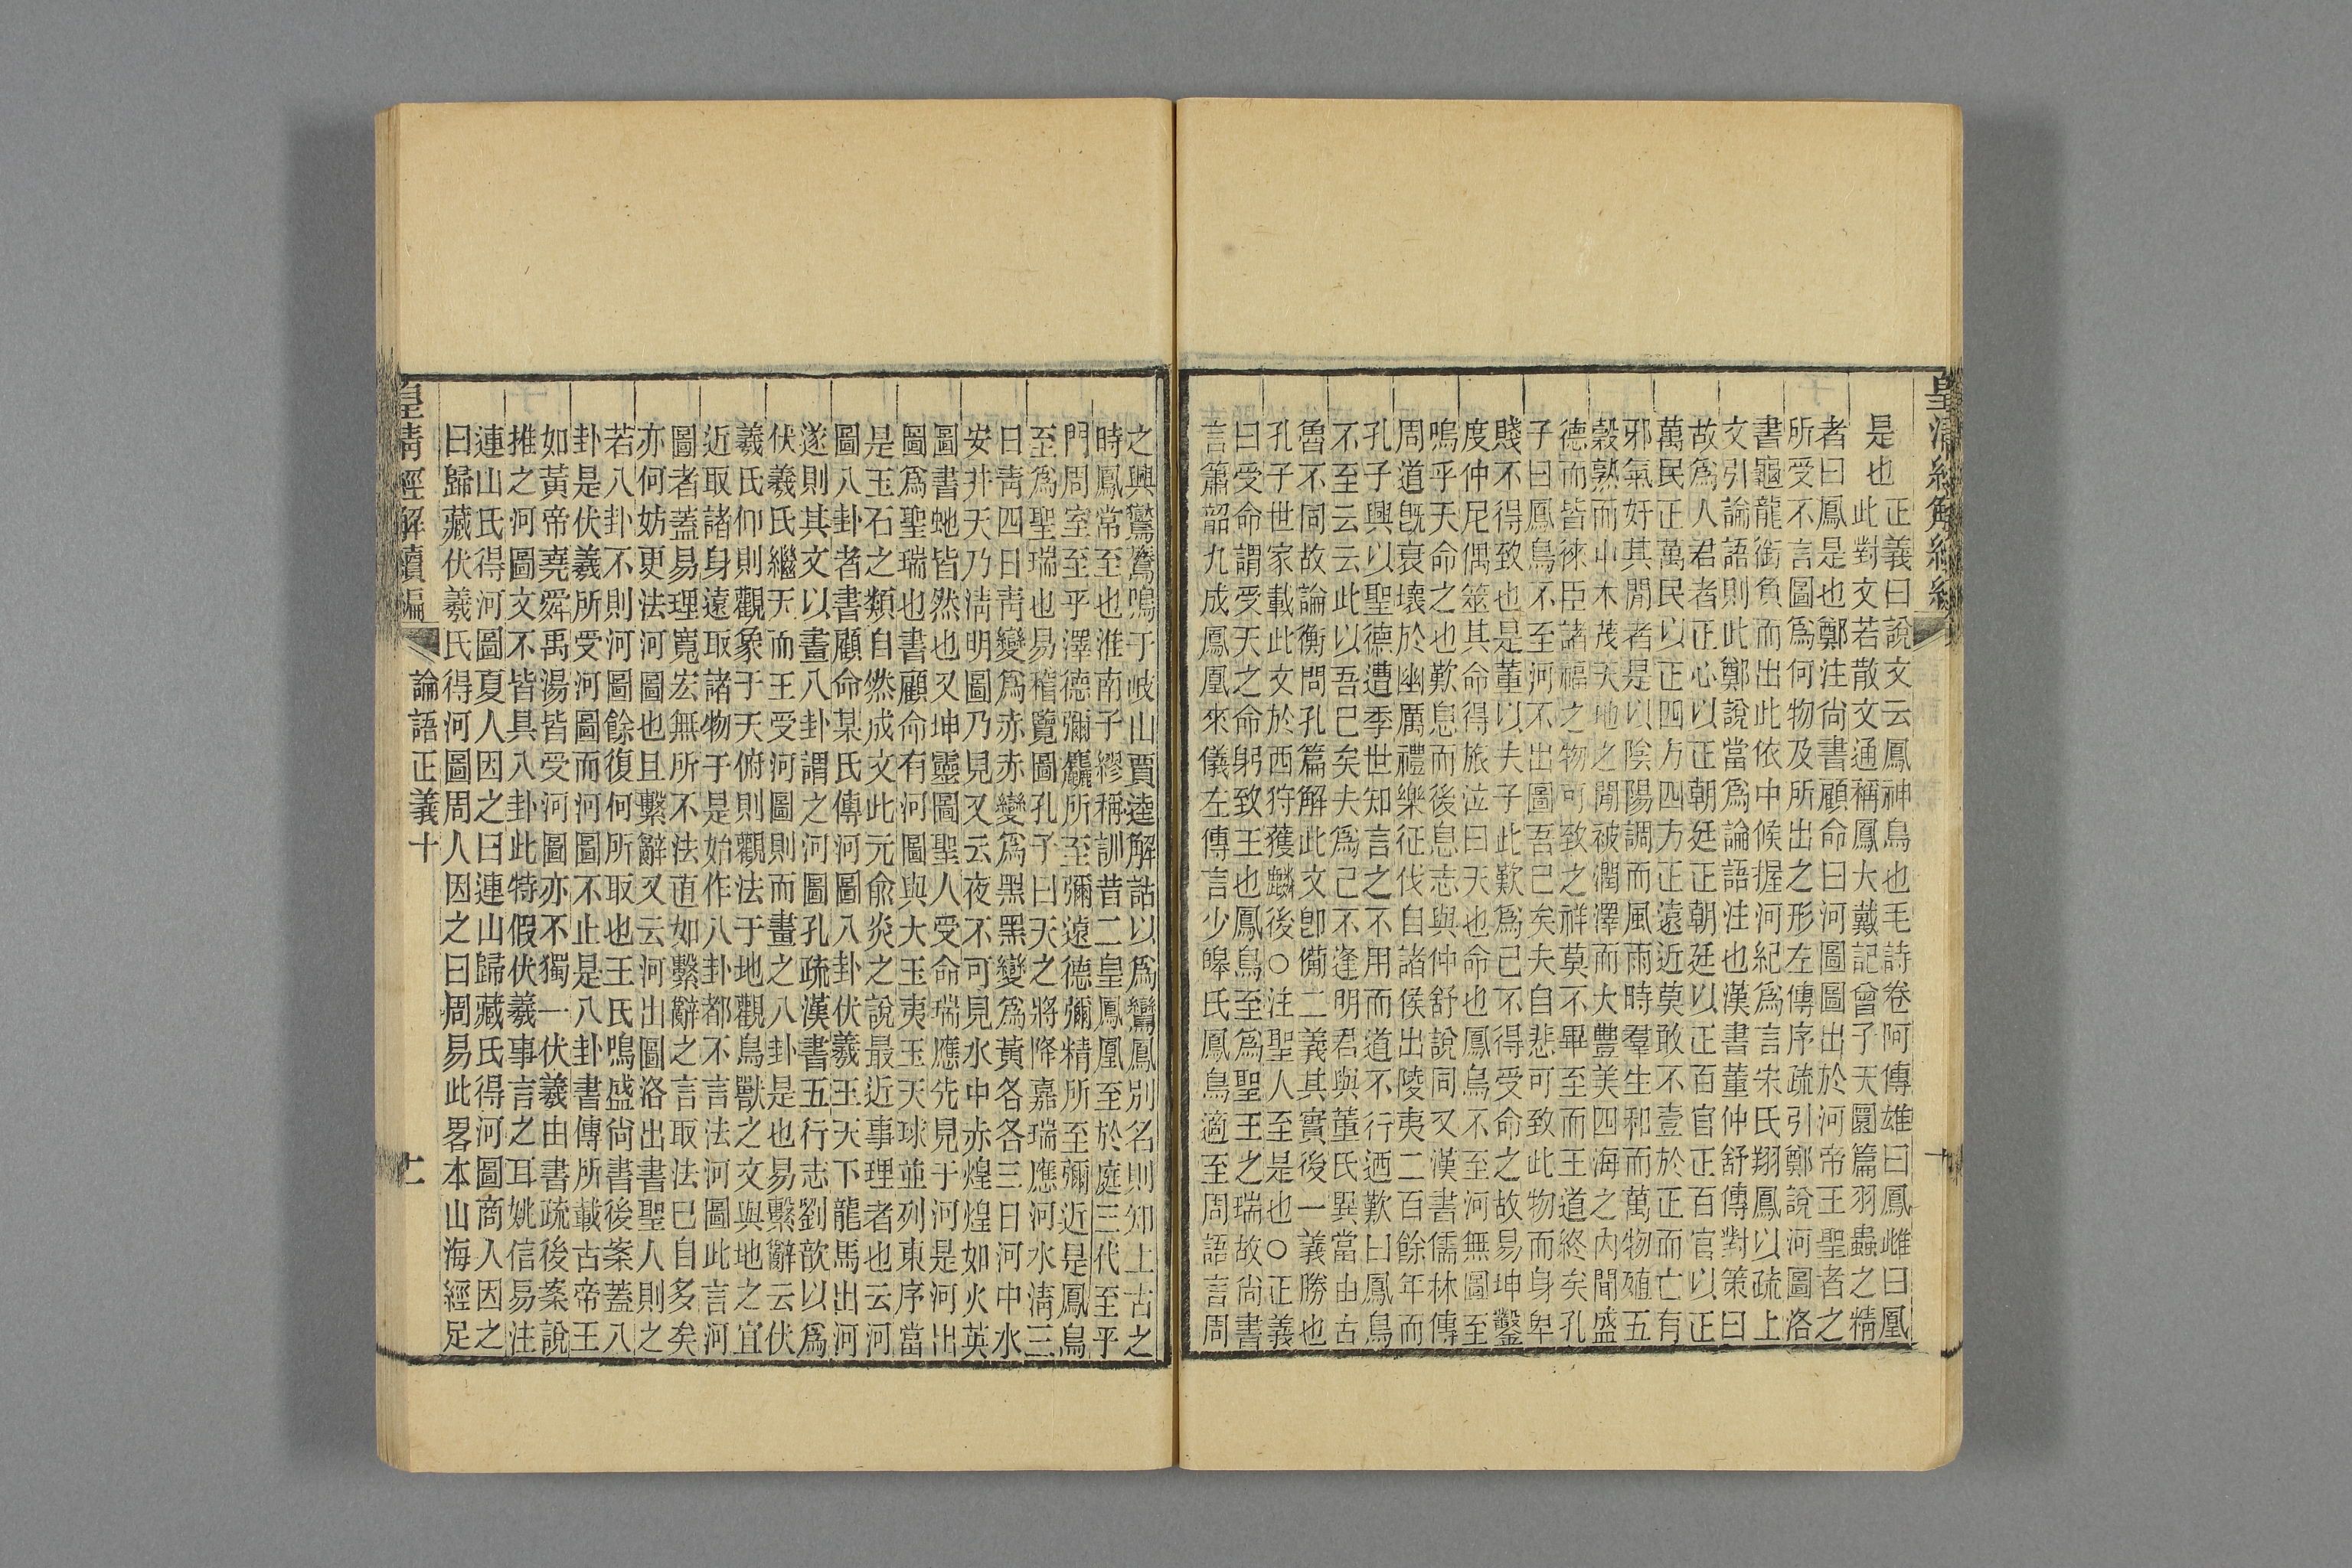 皇清經解續編
是也
正義曰說文云鳳神鳥也毛詩卷阿傳雄曰鳳雌曰凰
此對文若散文通稱鳳大戴記曾子天圜篇羽蟲之精
者曰鳳是也鄭注尚書顧命曰河圖圖出於河帝王聖者之
所受不言圖爲何物及所出之形左傳序疏引鄭說河圖洛
書龜龍銜負而出此依中候握河紀爲言宋氏翔鳳以疏上
文引論語則此鄭說當爲論語注也漢書董仲舒傳對策曰
故爲人君者正心以正朝廷正朝廷以正百官正百官以正
萬民正萬民以正四方四方正遠近莫敢不壹於正而亡有
邪氣奸其閒者是以陰陽調而風雨時羣生和而萬物殖五
穀熟而屮木茂天地之閒被潤澤而大豐美四海之內聞盛
德而皆徠臣諸福之物可致之祥莫不畢至而王道終矣孔
子曰鳳鳥不至河不出圖吾已矣夫自悲可致此物而身卑
賤不得致也是董以夫子此歎爲己不得受命之故易坤鑿
度仲尼偶筮其命得旅泣曰天也命也鳳鳥不至河無圖至
嗚乎天命之也歎息而後息志與仲舒說同又漢書儒林傳
周道旣衰壞於幽厲禮樂征伐自諸侯出陵夷二百餘年而
孔子興以聖德遭季世知言之不用而道不行迺歎曰鳳鳥
不至云云此以吾已矣夫爲己不逢明君與董氏異當由古
魯不同故論衡問孔篇解此文卽備二義其實後一義勝也
孔子世家載此文於西狩獲麟後○注聖人至是也○正義
曰受命謂受天之命躬致王也鳳鳥至爲聖王之瑞故尚書
言簫韶九成鳳凰來儀左傳言少皞氏鳳鳥適至周語言周
之興鸑鷟鳴于岐山賈逵解詁以爲鸞鳳別名則知上古之
時鳳常至也淮南子繆稱訓昔二皇鳳凰至於庭三代至乎
門周室至乎澤德彌麤所至彌遠德彌精所至彌近是鳳鳥
至爲聖瑞也易稽覽圖孔子曰天之將降嘉瑞應河水淸三
日靑四日靑變爲赤赤變爲黑黑變爲黃各各三日河中水
安井天乃淸明圖乃見又云夜不可見水中赤煌煌如火英
圖書虵皆然也又坤靈圖聖人受命瑞應先見于河是河出
圖爲聖瑞也書顧命有河圖與大玉夷玉天球並列東序當
是玉石之類自然成文此元俞炎之說最近事理者也云河
圖八卦者書顧命某氏傳河圖八卦伏羲王天下龍馬出河
遂則其文以畫八卦謂之河圖孔疏漢書五行志劉歆以爲
伏羲氏繼天而王受河圖則而畫之八卦是也易繫辭云伏
羲氏仰則觀象于天俯則觀法于地觀鳥獸之文與地之宜
近取諸身遠取諸物于是始作八卦都不言法河圖此言河
圖者蓋易理寬宏無所不法直如繫辭之言取法已自多矣
亦何妨更法河圖也且繫辭又云河出圖洛出書聖人則之
若八卦不則河圖餘復何所取也王氏鳴盛尚書後案蓋八
卦是伏羲所受河圖而河圖不止是八卦書傳所載古帝王
如黃帝堯舜禹湯皆受河圖亦不獨一伏羲由書疏後案說
推之河圖文不皆具八卦此特假伏羲事言之耳姚信易注
連山氏得河圖夏人因之曰連山歸藏氏得河圖商人因之
曰歸藏伏羲氏得河圖周人因之曰周易此畧本山海經足
皇淸經解續編 論語正義十